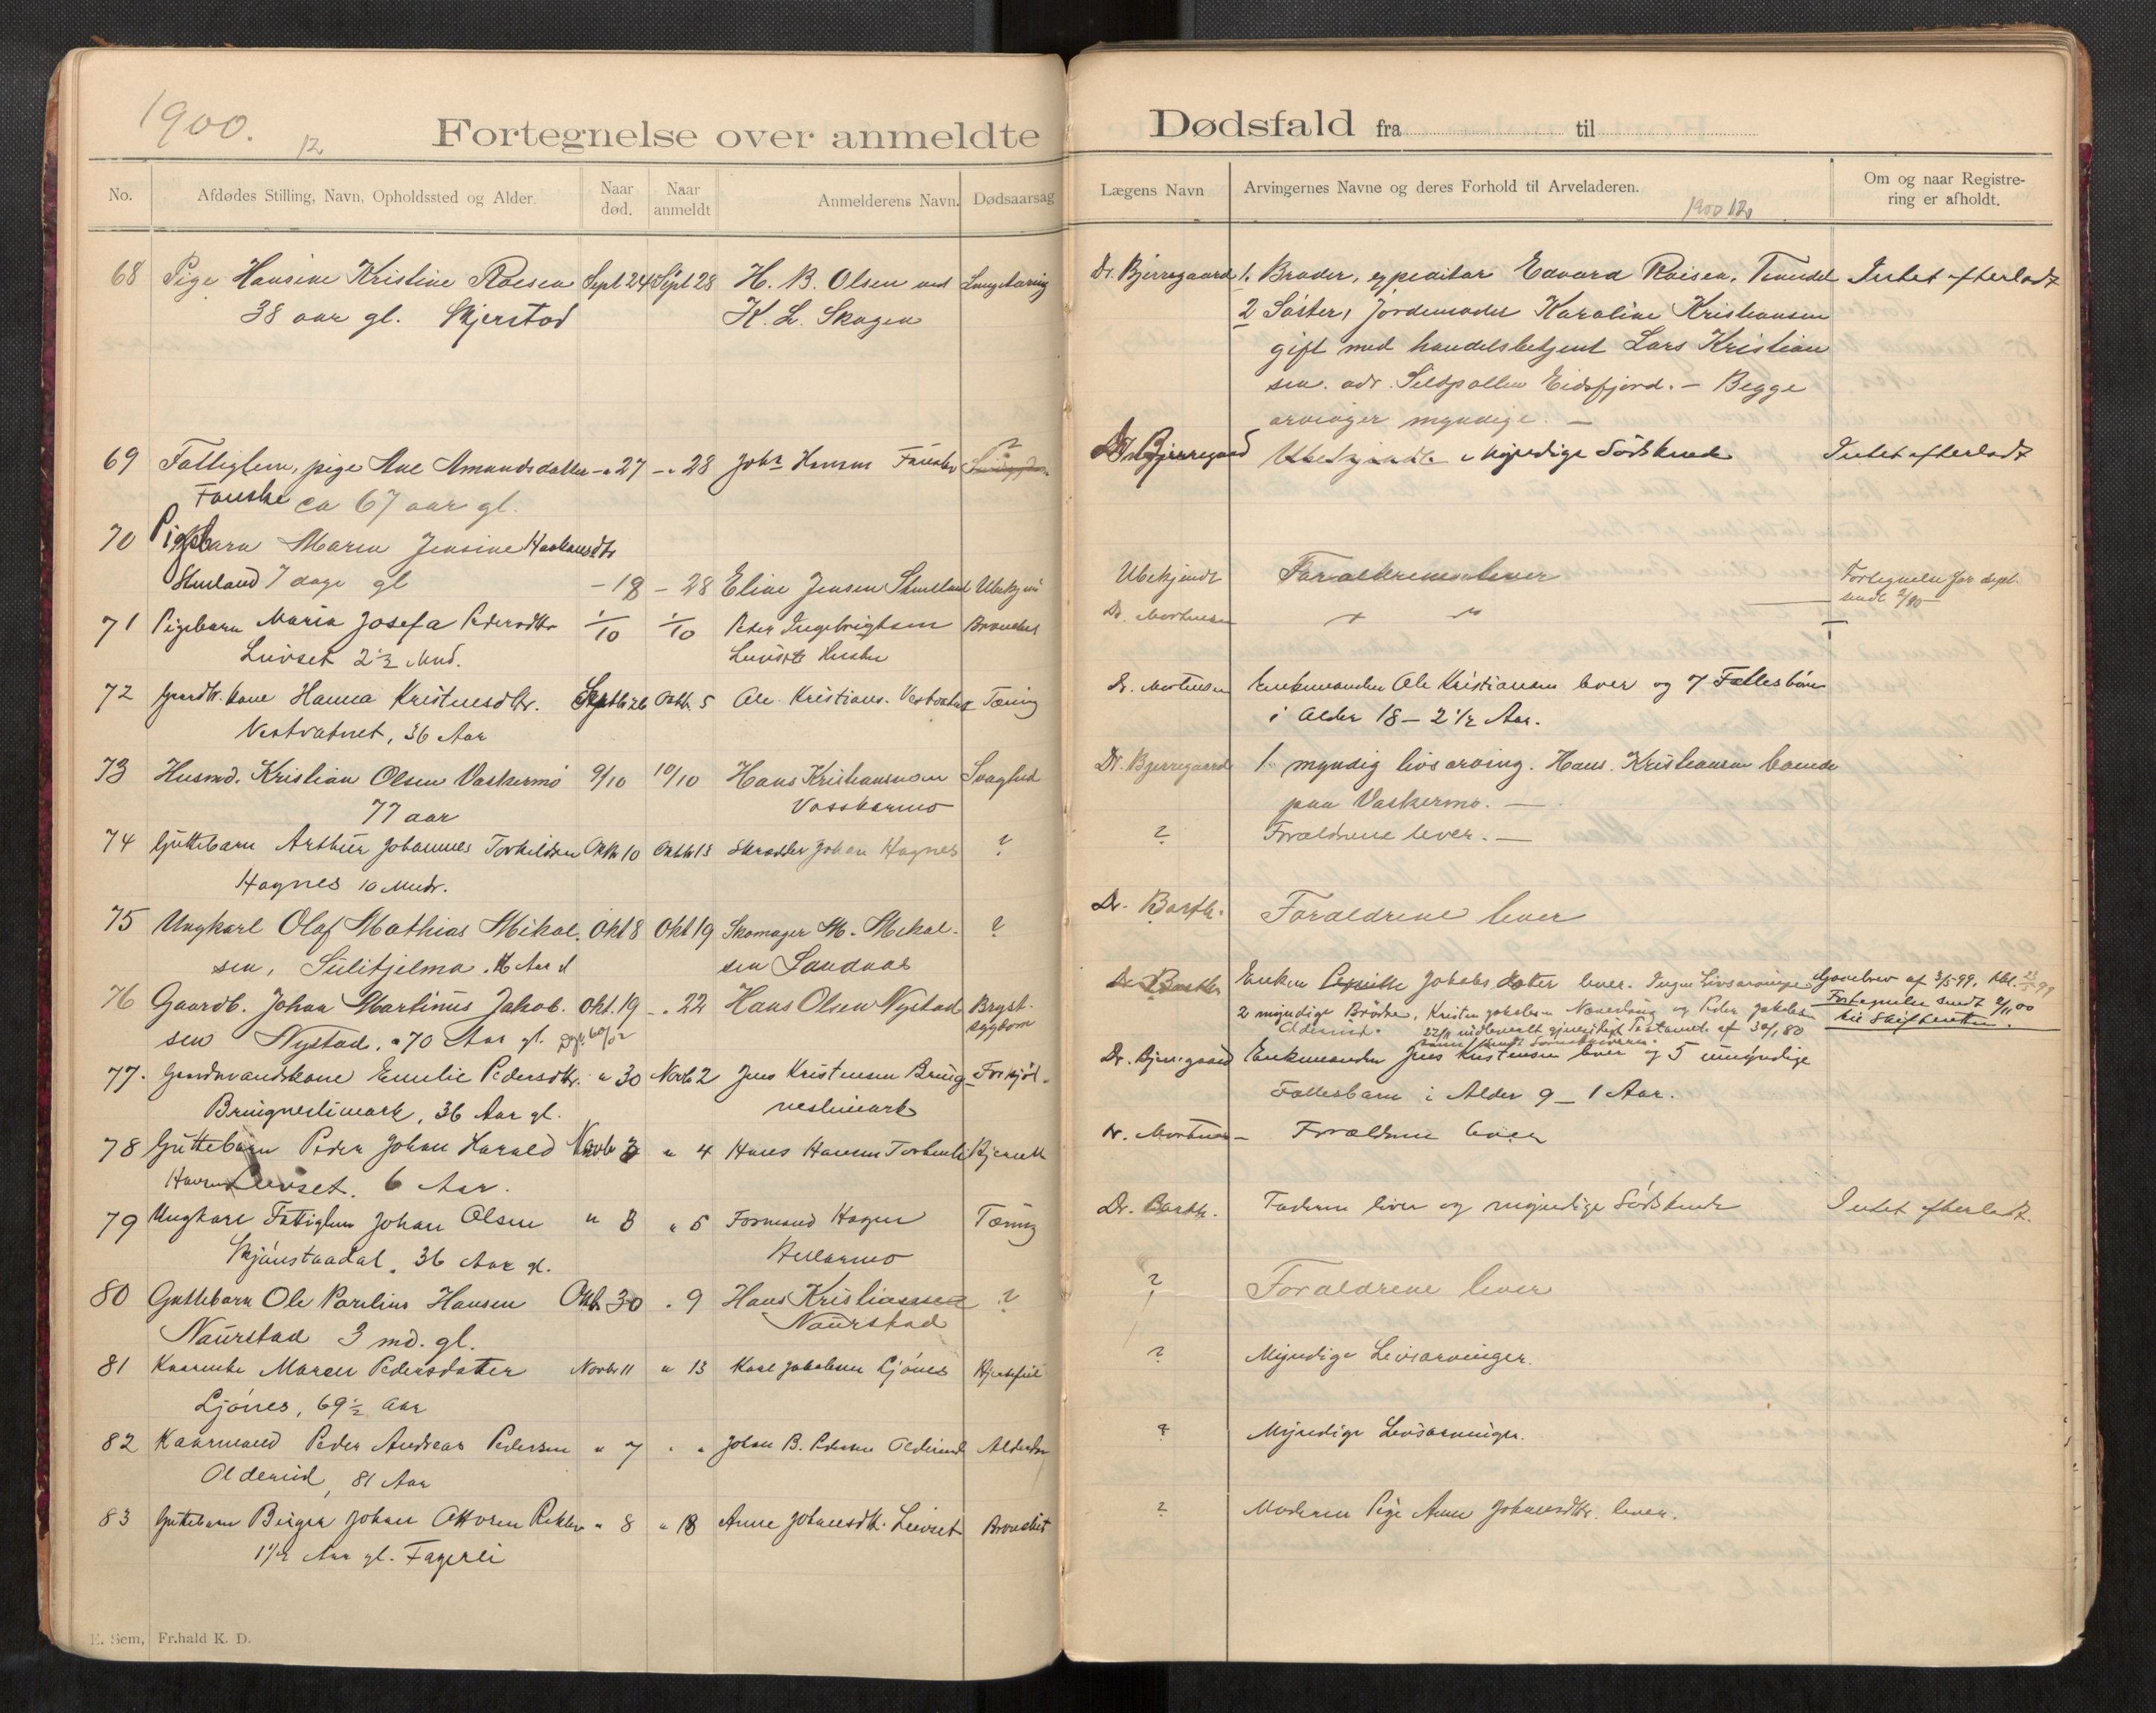 1900.
12
Fortegnelse over anmeldte
Dødsfald fra til
No. Afdødes Stilling, Navn, Opholdssted og Alder. Naar død. Naar anmeldt Anmelderens Navn. Dødsaarsag
Lægens Navn Arvingernes Navne og deres Forhold til Arveladeren. Om og naar Registrering er afholdt.
1900
68 Pige Hansine Kristine Roisen Sept 24 Sept 28 H. B. Olsen ved Lungetæring
38 aar gl. Skjerstad K. L. Skagen
Dr. Bjerregaard 1. Broder, expeditør Edvard Roisen, Intet efterladt
2 Søster, Jordemoder Karoline Kristiansen
gift med handelsbetjent Lars Kristian
sen. adr. Sildpollen Eidsfjord. – Begge
arvinger myndige. –
69 Fattiglem, pige Ane Amundsdatter - " 27 - " 28 Johs Hansen Fauske ?
Fauske ca 67 aar gl.
Dr Bjerregaard myndige Södskende Intet efterladt
70 Pigebarn Maren Jensine Haakensdtr
7 dage gl - 18 - 28 Eline Jensen Ubekjent
Ubekjendt Forældrene lever Fortegnelse for sept.
sendt 2/10
71 Pigebarn Maria Josefa Pedersdtr 1/10 1/10 Peder Ingebrigtsen
Leivset 2 1/2 Mnd.
Dr. Mortensen " "
72 Gaardbr. kone Hanna Kristensdtr. Septb 26 Oktb. 5 Ole Kristians. Vestvatnet Tæring
Vestvatnet, 36 Aar
Dr. Mortensen Enkemanden Ole Kristiansen lever og 7 Fællesbörn
i Alder 18 – 2 1/2 Aar.
73 Husmd. Kristian Olsen Vaskermo 9/10 10/10 Hans Kristiansen
77 aar
Dr. Bjerregaard 1 myndig livsarving. Hans Kristiansen boende
paa Vaskermo. –
74 Guttebarn Arthur Johannes Torkildsen Oktb 10 Oktb 13 Skrædder Johan Hagnes ?
Hagnes 10 Mndr.
? Forældrene lever. –
75 Ungkarl Olaf Mathias Mikal- Okt 8 Okt 19 Skomager M. Mikal- ?
sen, Sulitjelma. sen Sandnes
Dr. Barth. Forældrene lever
76 Gaardb. Johan Martinus Jakob- Okt. 19 - " 22 Hans Olsen Nystad Bryst-
sen Nystad, 70 Aar gl. sygdom
Enken Jakobsdatter lever. Ingen Livsarvinger Gavebrev af 3/5-99.
2 myndige Brödre, Kristen Jakobsen og Peder Jakobsen Fortegnelse sendt 2/11 00
til Skifteretten.
gjensidigt Testament af 30/1 80
77. Gaardmandskone Emilie Pedersdtr. " 30 Novb 2 Jens Kristensen Bring-
Bringneslimark, 36 Aar gl. neslimark
Dr. Bjerregaard Enkemanden Jens Kristensen lever og 5 umyndige
Fællesbarn i Alder 9 – 1 Aar.
78 Guttebarn Peder Johan Harald Novb 3 " 4 Hans Hansen
Leivset. 6 Aar.
Dr. Mortensen – Forældrene lever
79 Ungkarl Fattiglem Johan Olsen " 3 " 5 Formand Hagen Tæring
Skjönstaadal, 36 Aar gl.
Dr. Barth. Faderen lever og myndige Södskende Intet efterladt.
80 Guttebarn Ole Parelius Hansen Oktb. 30 " 9 Hans Kristiansen ?
Naurstad 3 md. gl. Naurstad
? Forældrene lever
81 Kaarenke Maren Pedersdatter Novbr 11 " 13 Karl Jakobsen Ljönes Hjertefeil
Ljönes, 69 1/2 aar
? Myndige Livsarvinger.
82 Kaarmand Peder Andreas Pedersen " 7 " " Johan B. Pedersen
81 Aar
? Myndige Livsarvinger.
83 Guttebarn Birger Johan " 8 " 18 Anne Johansdtr. Leivset Bronchit
1 1/2 Aar gl. Fagerli
? Moderen Pige Anne Johansdtr. lever.
E. Sem, Fr.hald K. D.